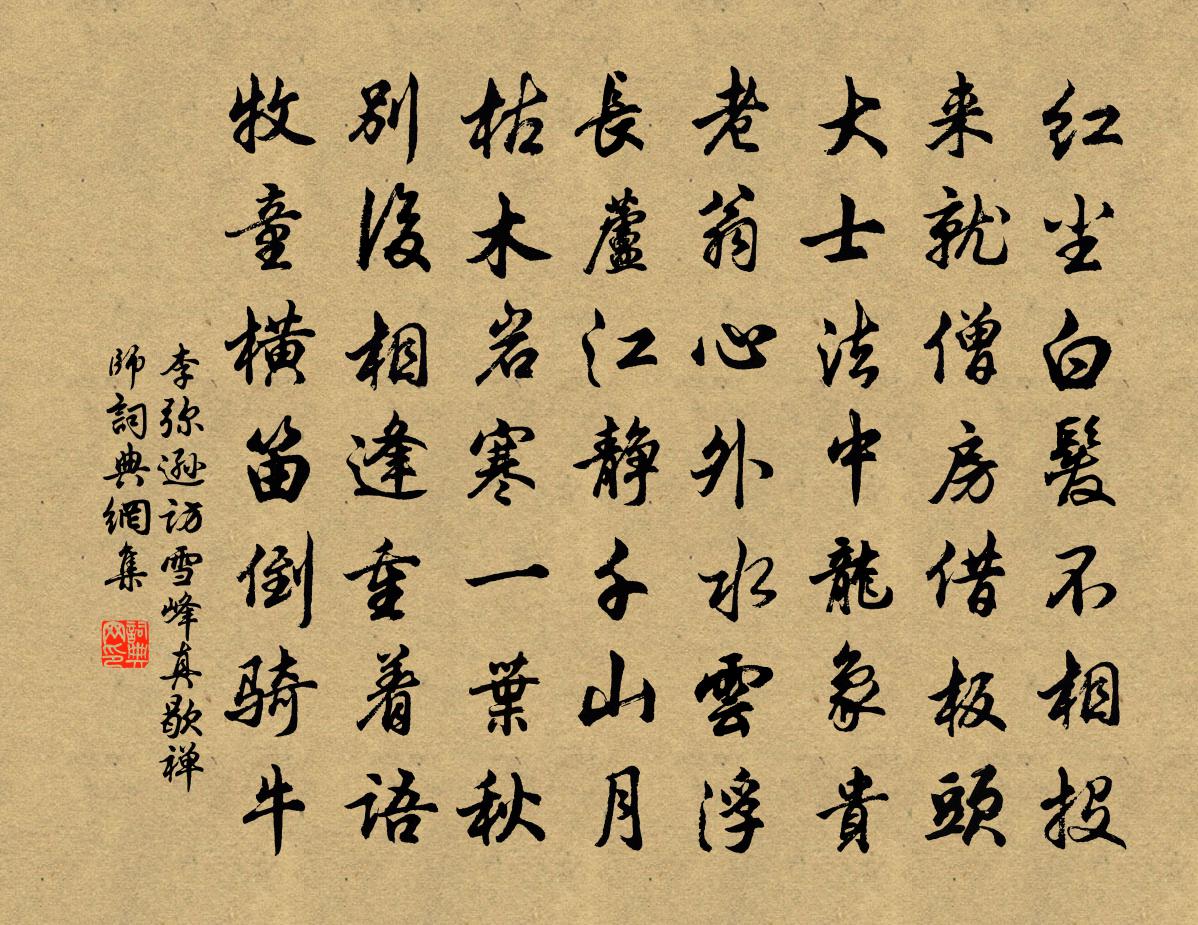 红尘白髮不相投
来就僧房借板頭
大士法中龍象貴
老翁心外水雲浮
長蘆江静千山月
枯木岩寒一葉秋
别後相逢重着语
牧童横笛倒骑牛
李弥逊访雪峰真歇禅
師詞典網集
詞典网印